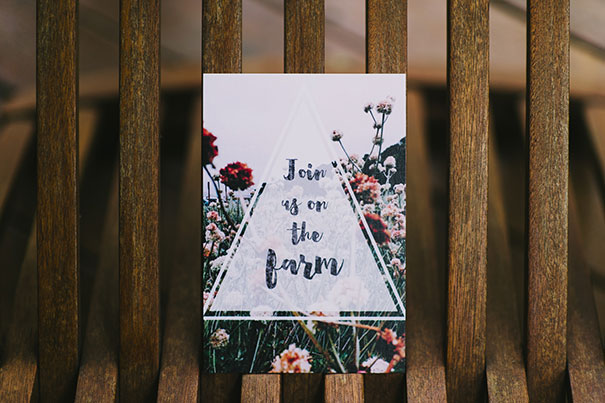 Join
us on
the
farm